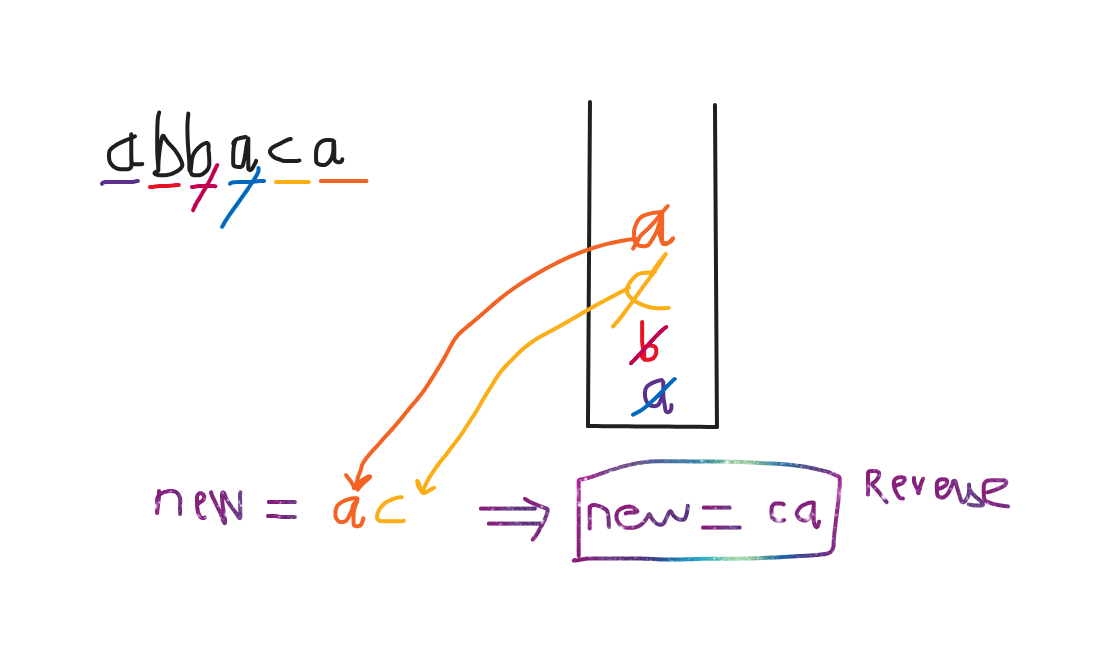 abbaca
a
c
b
a
new = ac ⇒ new = ca Reverse